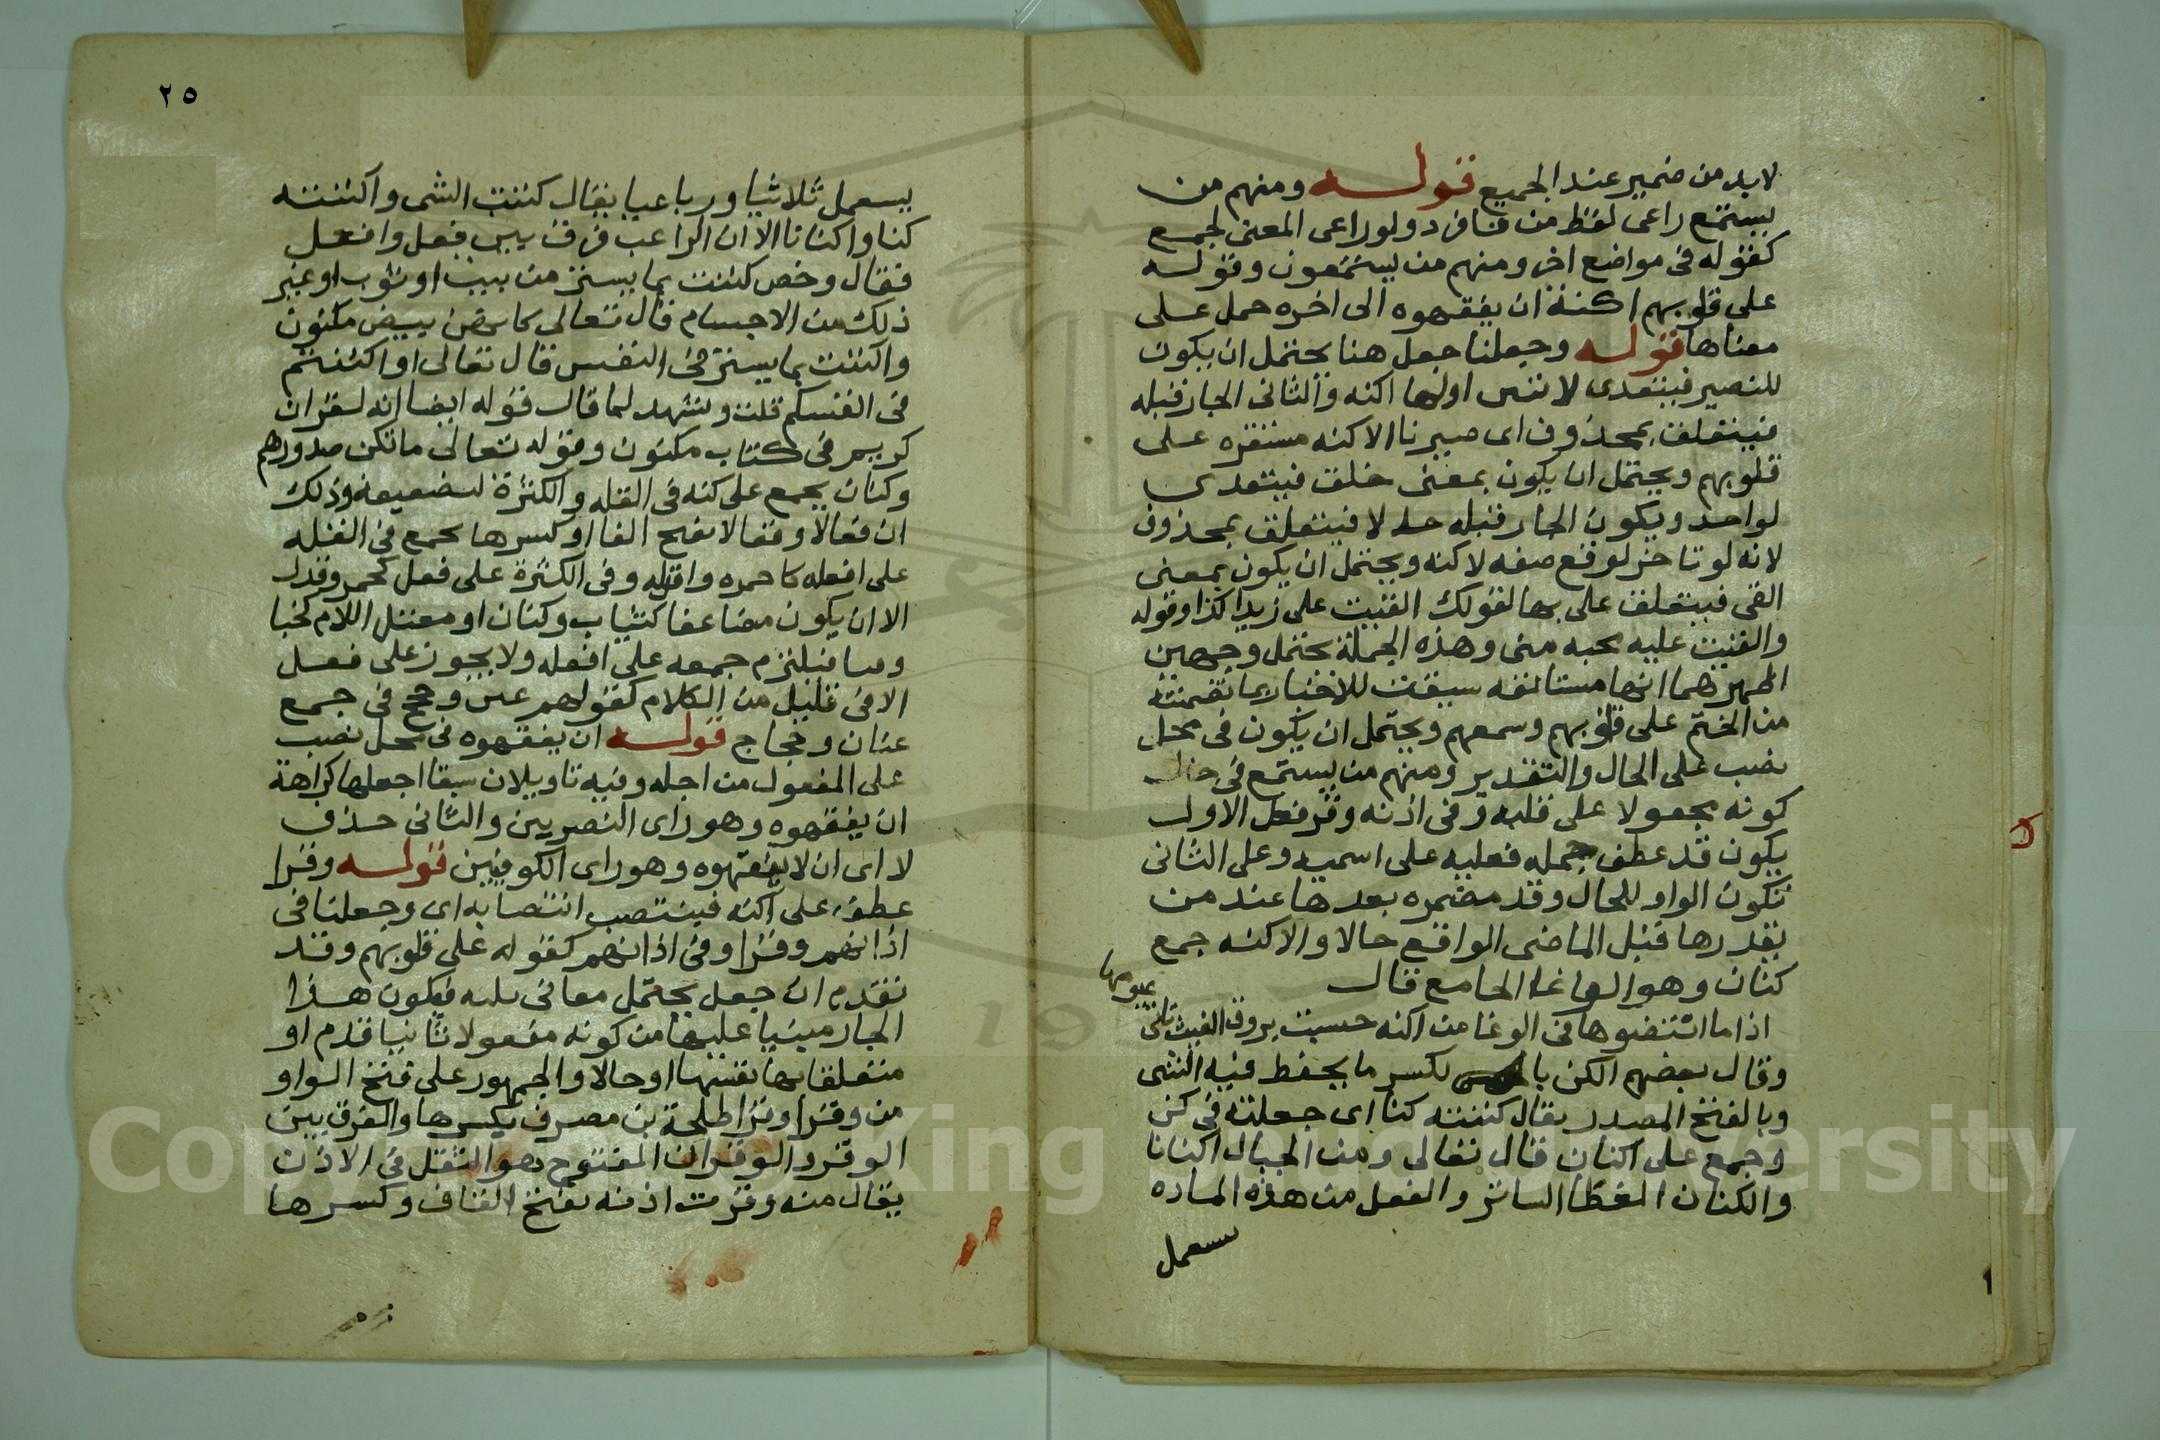 لابد من ضمير عند الجميع قوله ومنهم من
يستمع راعى لفظ من فافرد ولو راعى المعنى لجمع
كقوله في مواضع اخر ومنهم من يستمعون وقوله
على قلوبهم اكنة ان يفقهوه الى اخره حمل على
معناها قوله وجعلنا جعل هنا يحتمل ان يكون
للتصير فيتعدى لاثنين اولهما اكنه والثاني الجار قبله
فيتعلق بمحذوف اى صيرنا الاكنه مستقره على
قلوبهم ويحتمل ان يكون بمعنى خلق فيتعدى
لواحد ويكون الجار قبله حالا فيتعلق بمحذوف
لانه لو تاخر لوقع صفه لاكنه ويحتمل ان يكون بمعنى
القى فيتعلق على بها لقولك القيت على زيد كذا وقوله
والقيت عليه محبه منى وهذه الجملة تحتمل وجهين
اظهرهما انها مستانفه سيقت للاخبار بما تضمنته
من الختم على قلوبهم وسمعهم ويحتمل ان يكون في محل
نصب على الحال والتقدير ومنهم من يستمع في حال
كونه مجعولا على قلبه وفى اذنه وقر فعلى الاول
يكون قد عطف جمله فعليه على اسميه وعلى الثانى
تكون الواو للحال وقد مضمره بعدها عند من
يقدرها قبل الماضى الواقع حالا والاكنه جمع
كنان وهو الوعاء الجامع قال
اذا ما انتضوها في الوغا من اكنه حسبت بروق الغيث تاتى
غيومها
وقال بعضهم الكن بالكسر ما يحفظ فيه الشى
وبالفتح المصدر يقال كننته كنا اى جعلته في كن
وجمع على اكنان قال تعالى ومن الجبال اكنانا
والكنان الغطا الساتر والفعل من هذه الماده
يستعمل
٢٥
يستعمل ثلاثيا ورباعيا يقال كننت الشى واكننته
كنا واكنانا الا ان الراغب فرق بين فعل وافعل
فقال وخص كننت بما يستر من بيت او ثوب او غير
ذلك من الاجسام قال تعالى كانهن بيض مكنون
واكننت بما يستر في النفس قال تعالى او اكننتم
في انفسكم قلت ويشهد لما قال قوله ايضا انه لقران
كريم في كتاب مكنون وقوله تعالى ما تكن صدورهم
وكنان يجمع على كنه في القله والكثرة لتضعيفه وذلك
ان فعالا وفعالا بفتح الفا او كسرها يجمع في القله
على افعله كاحمره واقذله وفى الكثرة على فعل كحمر وقذل
الا ان يكون مضاعفا كبتات وكنان او معتل اللام كخبا
وقبا فيلتزم جمعه على افعله ولا يجوز على فعل
الا في قليل من الكلام كقولهم عنن وحجج في جمع
عنان وحجاج قوله ان يفقهوه في محل نصب
على المفعول من اجله وفيه تاويلان سبقا احدهما كراهة
ان يفقهوه وهو راى البصريين والثانى حذف
لا اى ان لا يفقهوه وهو راى الكوفيين قوله وقرا
عطف على اكنه فينتصب انتصابه اى وجعلنا في
اذانهم وقرا وفى اذانهم كقوله على قلوبهم وقد
تقدم ان جعل يحتمل معانى ثلاثه فيكون هذا
الجار مبنيا عليها من كونه مفعولا ثانيا قدم او
متعلقا بها نفسها او حالا والجمهور على فتح الواو
من وقرا وقرا طلحة بن مصرف بكسرها والفرق بين
الوقر والوقر ان المفتوح هو الثقل في الاذن
يقال منه وقرت اذنه بفتح القاف وكسرها